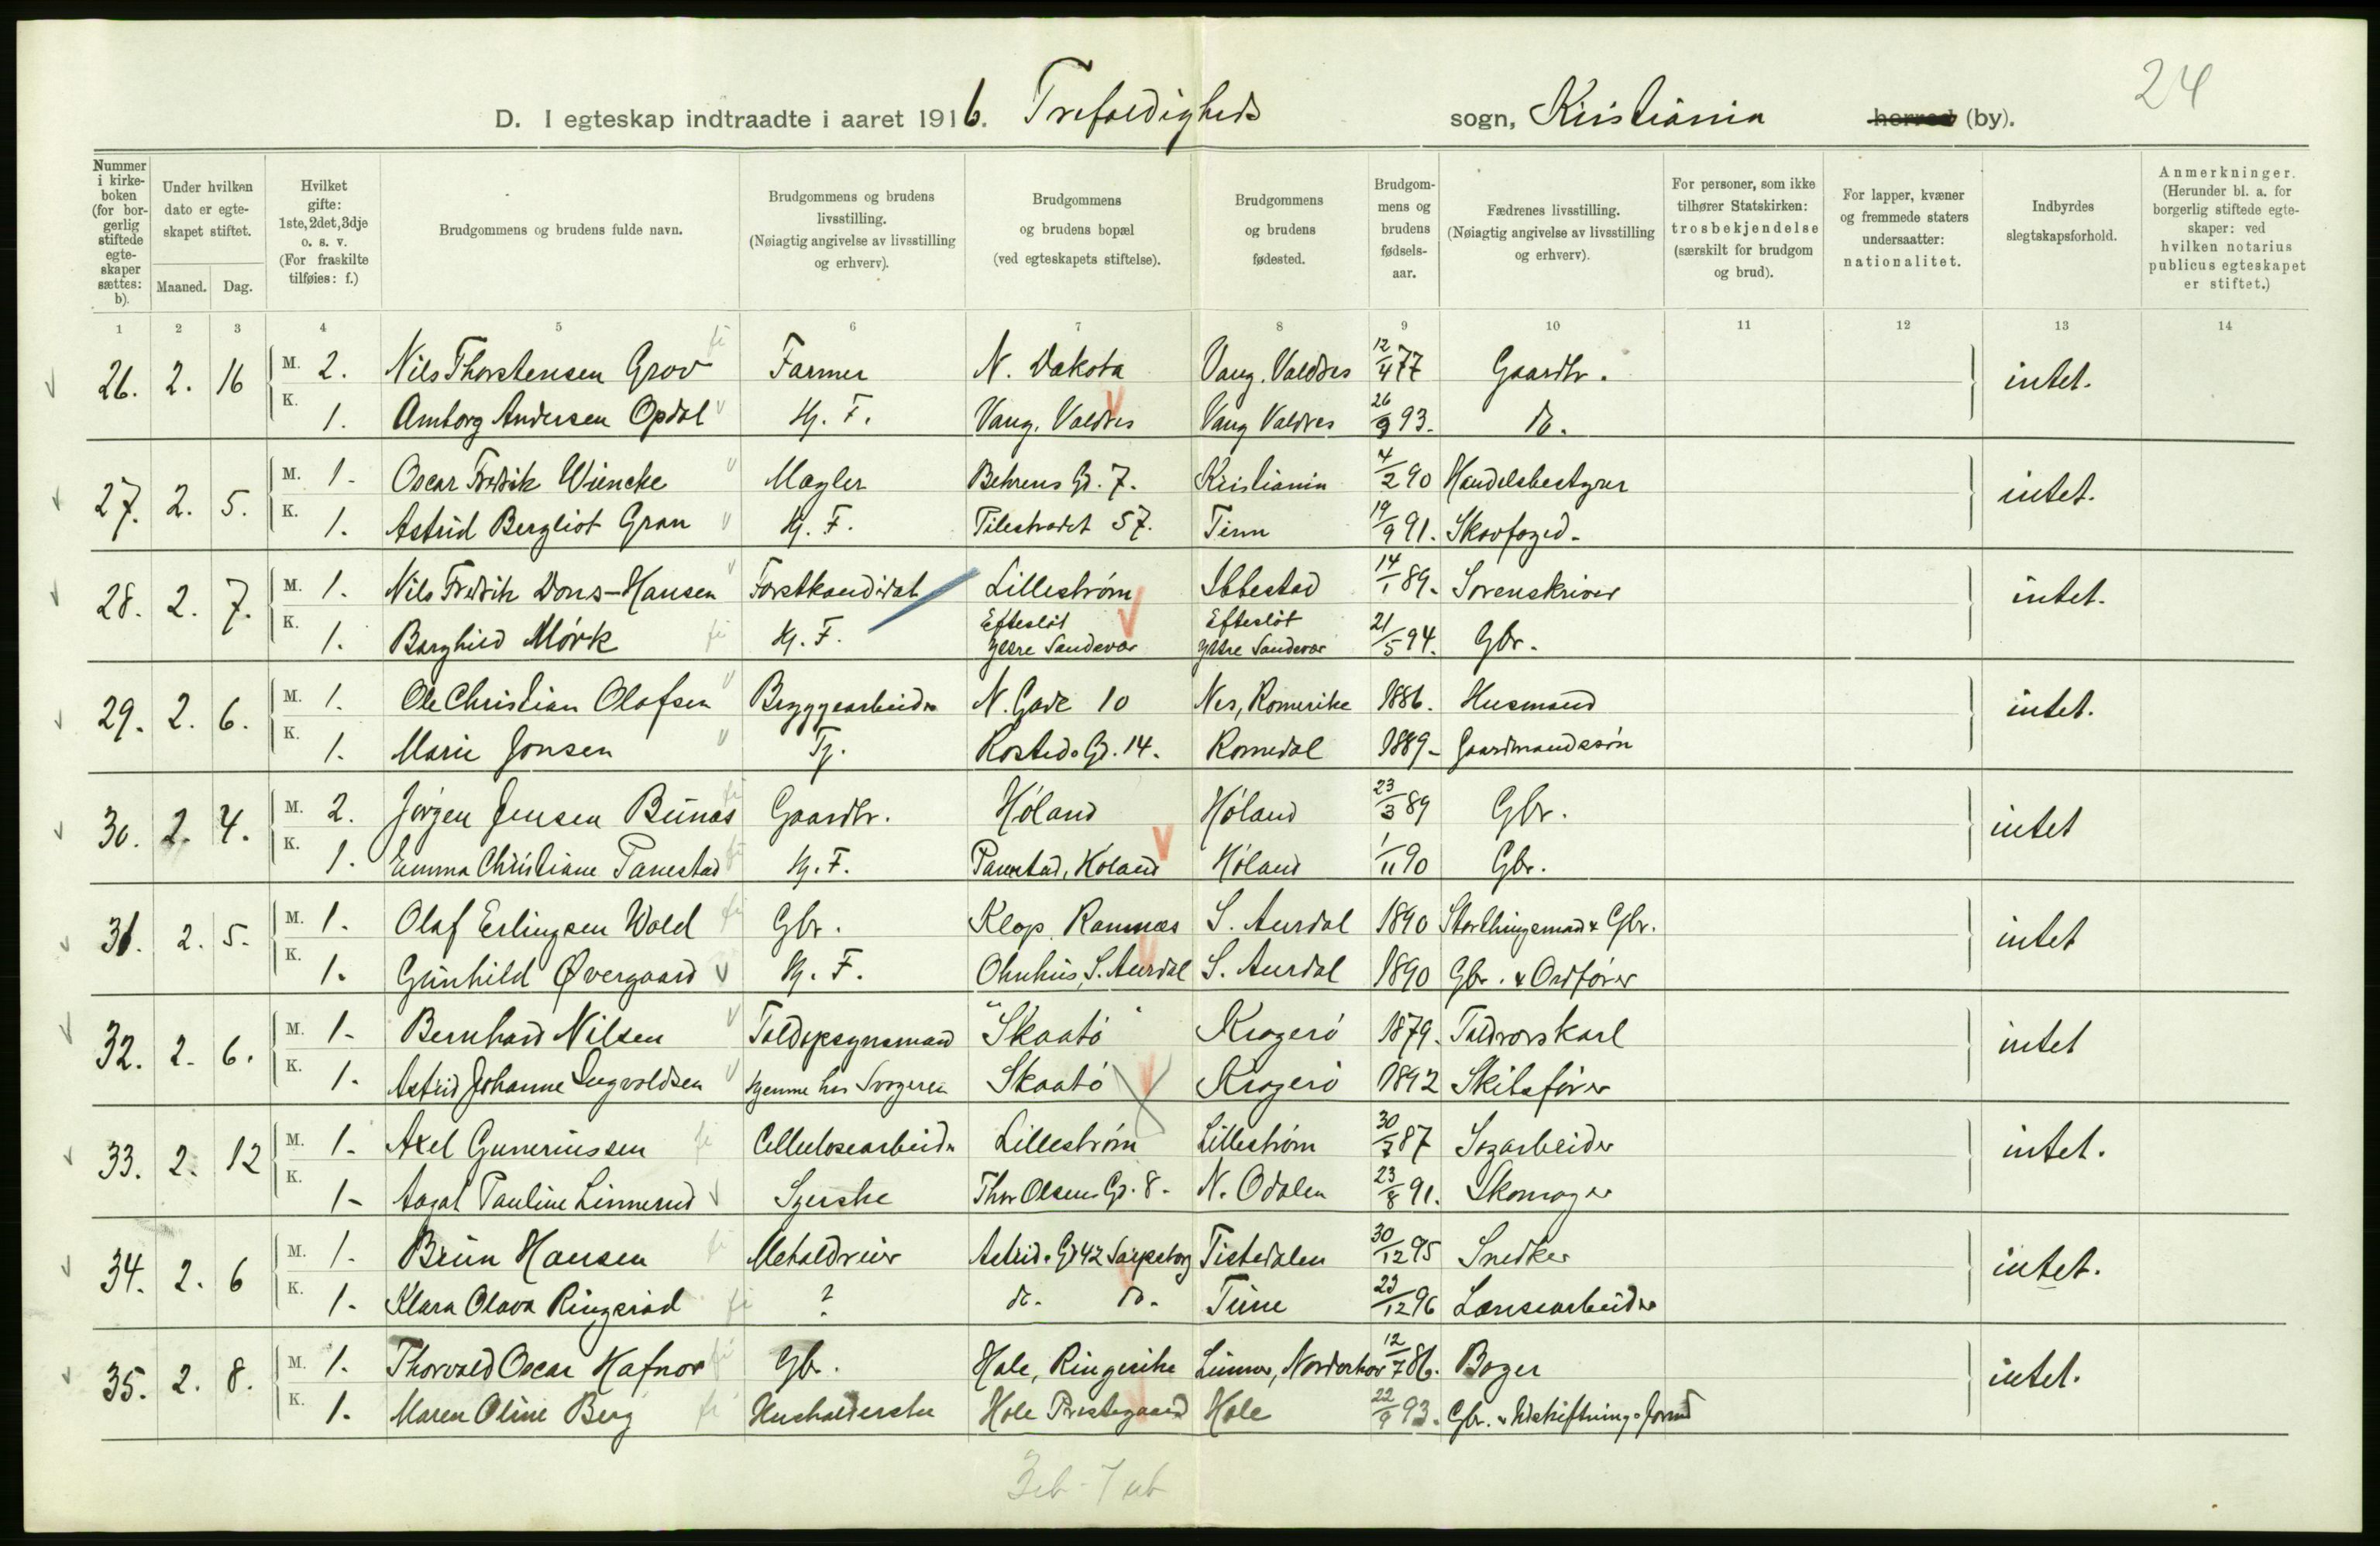 24
D. I egteskap indtraadte i aaret 1916. Trefoldigheds sogn, Kristiania herred (by).
Nummer i kirkeboken (for borgerlig stiftede egteskaper sættes: b).
Under hvilken dato er egteskapet stiftet. Maaned. Dag.
Hvilket gifte: 1ste, 2det, 3dje o. s. v. (For fraskilte tilføies: f.)
Brudgommens og brudens fulde navn.
Brudgommens og brudens livsstilling. (Nøiagtig angivelse av livsstilling og erhverv).
Brudgommens og brudens bopæl (ved egteskapets stiftelse).
Brudgommens og brudens fødested.
Brudgommens og brudens fødselsaar.
Fædrenes livsstilling. (Nøiagtig angivelse av livsstilling og erhverv).
For personer, som ikke tilhører Statskirken: trosbekjendelse (særskilt for brudgom og brud).
For lapper, kvæner og fremmede staters undersaatter: nationalitet.
Indbyrdes slegtskapsforhold.
Anmerkninger. (Herunder bl. a. for borgerlig stiftede egteskaper: ved hvilken notarius publicus egteskapet er stiftet.)
1 2 3 4 5 6 7 8 9 10 11 12 13 14
26. 2. 16 M. 2. Nils Thorstensen Grov Farmer N. Dakota Vang. Valdres 12/4 77 Gaardbr. intet.
K. 1. Amborg Andersen Opdal Hj. F. Vang. Valdres Vang Valdres 26/9 93. do.
27. 2. 5. M. 1. Oscar Fredrik Wiencke Mægler Behrens Gd. 7. Kristiania 4/2 90 Handelsbestyrer intet.
K. 1. Astrid Bergliot Gran Hj. F. Pilestrædet 57. Tinn 19/9 91. Skovfoged.
28. 2. 7. M. 1. Nils Fredrik Dons-Hansen Forstkandidat Lillestrøm Ibbestad 14/1 89. Sorenskriver intet.
K. 1. Borghild Mørk Hj. F. Efteslöt Ytre Sandsvær Efteslöt Ytre Sandsvær 21/5 94. Gbr.
29. 2. 6. M. 1. Ole Christian Olafsen Bryggearbeider N. Gade 10 Nes, Romerike 1886. Husmand intet.
K. 1. Marie Jonsen Tj. Rosteds Gd. 14. Romedal 1889. Gaardmandssön
30. 2. 4. M. 2. Jörgen Jensen Bunæs Gaardbr. Höland Höland 23/3 89 Gbr. intet
K. 1. Emma Christiane Tanestad Hj. F. Tanestad, Höland Höland 1/11 90 Gbr.
31. 2. 5. M. 1. Olaf Erlingsen Wold Gbr. Klop. Ramnæs S. Aurdal 1890 Storthingsmand & Gbr. intet
K. 1. Gunhild Øvergaard Hj. F. Olmhus, S. Aurdal S. Aurdal 1890 Gbr. & Ordförer
32. 2. 6. M. 1. Bernhard Nilsen Toldopsynsmand "Skaatö" Kragerö 1879. Toldrorskarl intet
K. 1. Astrid Johanne Ingvoldsen hjemme hos Svogeren Skaatö Kragerö 1892 Skibsförer
33. 2. 12 M. 1. Axel Guneriussen Cellulosearbeider Lillestrøm Lillestrøm 30/7 87 Sagarbeider intet.
K. 1. Aagot Pauline Linnerud Syerske Thor Olsens Gd. 8. N. Odalen 23/8 91. Skomager
34. 2. 6 M. 1. Brun Hansen Metaldreier Astrids Gd 42 Sarpsborg Tistedalen 30/12 95 Snedker intet.
K. 1. Klara Olava Ringsrød ? do. do. Tune 23/12 96 Lænsearbeider
35. 2. 8. M. 1. Thorvald Oscar Hafnor Gbr. Hole, Ringerike Norderhov 12/7 86. Bager intet.
K. 1. Maren Oline Berg Husholderske Hole Prestegaard Hole 22/9 93. Gbr. & Utskiftnings formd